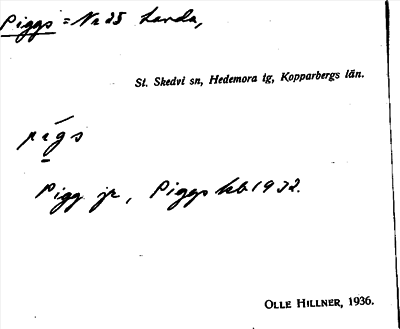 Piggs = Nr 25 Landa,
St. Skedvi sn, Hedemora tg, Kopparbergs län.
pigs
Pigg jr, Piggs kb 1932.
OLLE HILLNER, 1936.